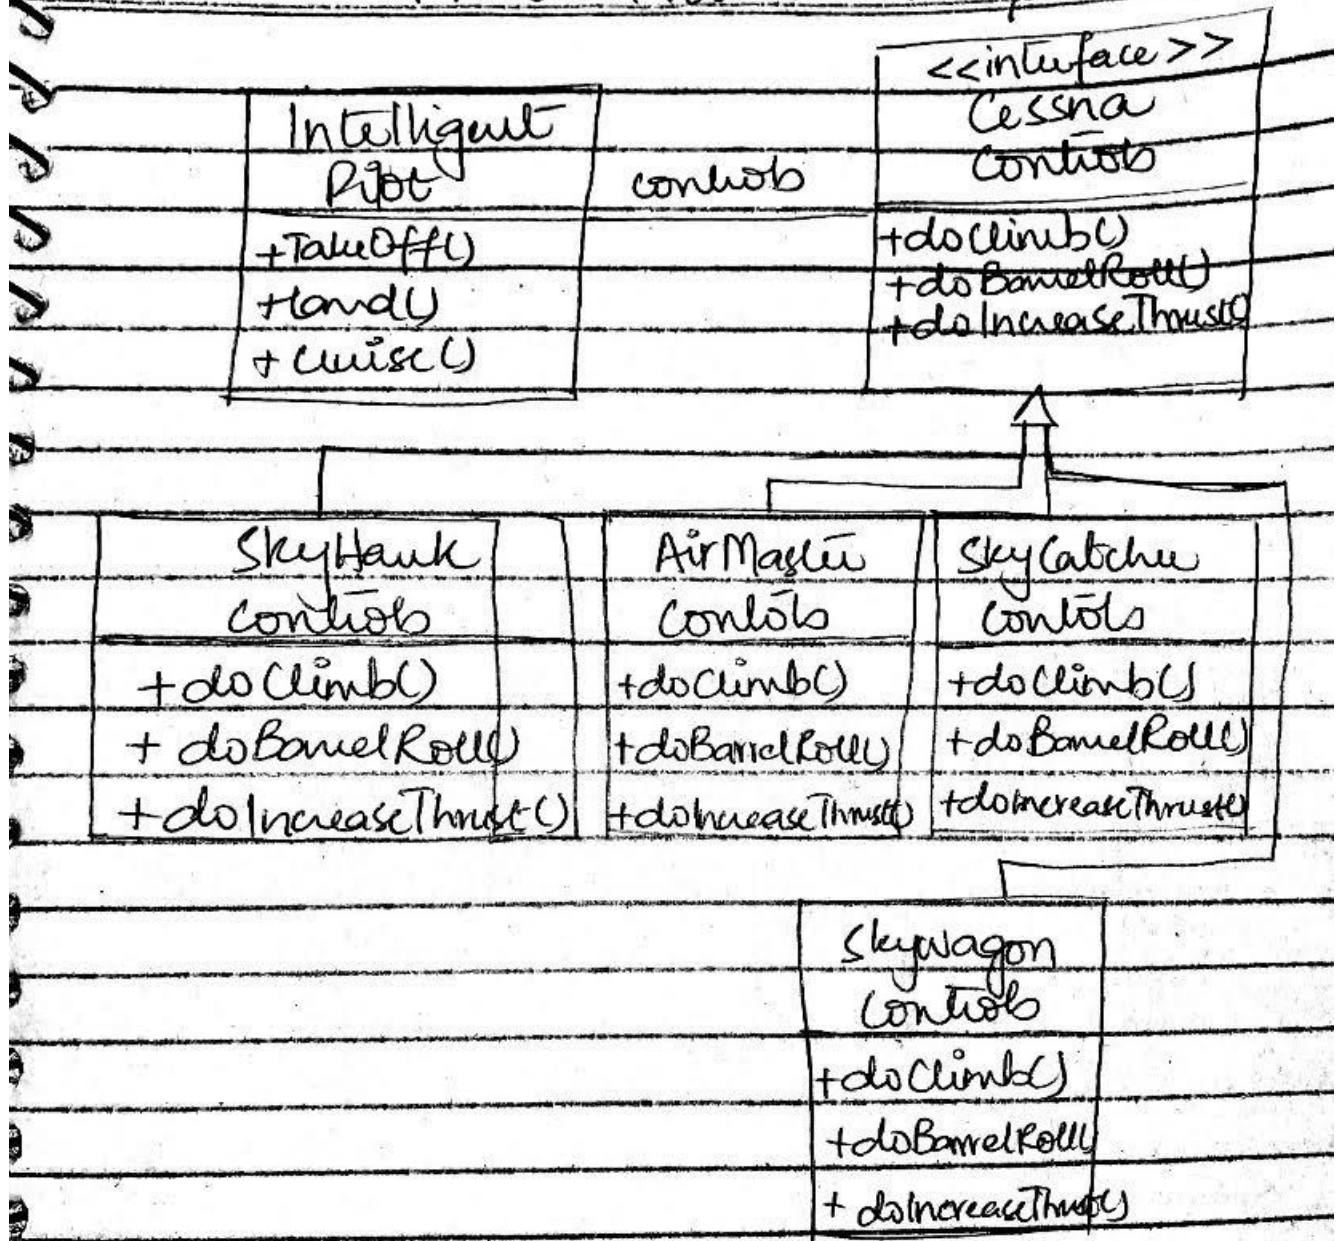 <<interface>>
Cessna
Controls
Intelligent
Pilot
+TakeOff()
+Land()
+cruise()
controls
+doClimb()
+doBarrelRoll()
+doIncreaseThrust()
SkyHawk
Controls
+doClimb()
+ doBarrelRoll()
+doIncreaseThrust()
AirMaster
Controls
+doClimb()
+doBarrelRoll()
+doIncreaseThrust()
SkyCatcher
Controls
+doClimb()
+doBarrelRoll()
+doIncreaseThrust()
Skywagon
Controls
+doClimb()
+doBarrelRoll()
+ doIncreaseThrust()